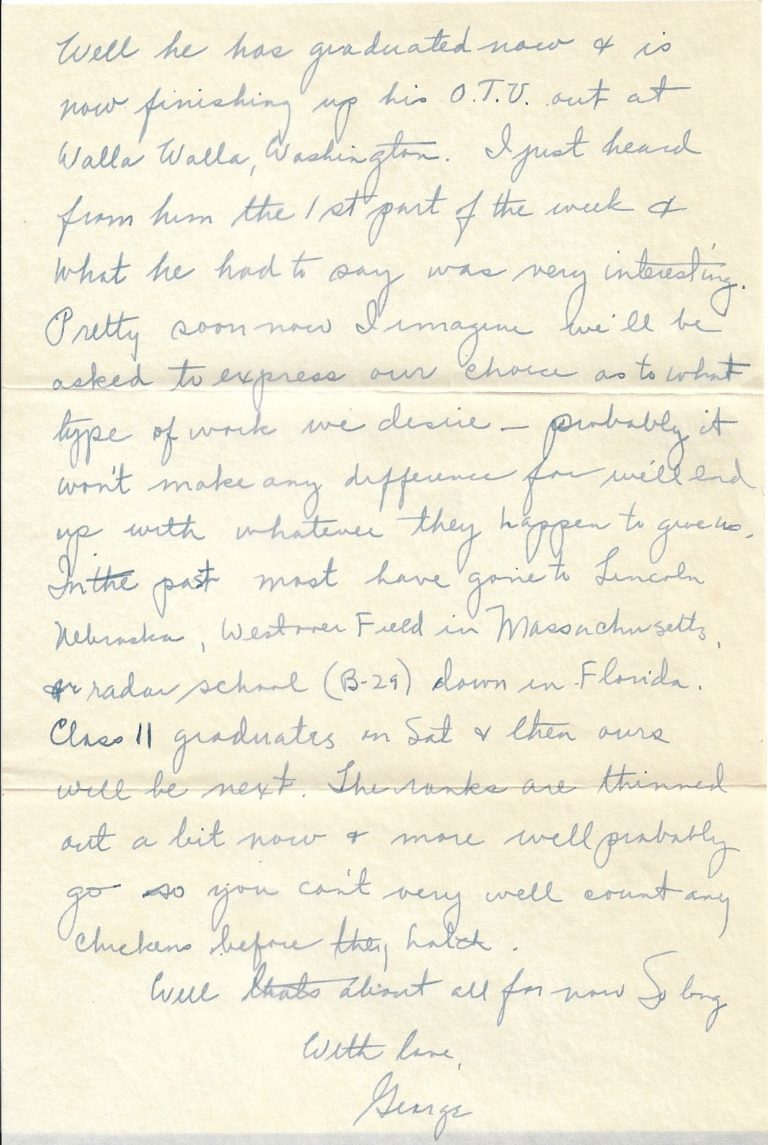 Well he has graduated now & is
now finishing up his O.T.U. out at
Walla Walla, Washington. I just heard
from him the 1st part of the week &
what he had to say was very interesting.
Pretty soon now I imagine we'll be
asked to express our choice as to what
type of work we desire – probably it
won't make any difference for we'll end
up with whatever they happen to give us.
In the past most have gone to Lincoln
Nebraska, Westover Field in Massachusetts,
or radar school (B-29) down in Florida.
Class 11 graduates on Sat & then ours
will be next. The ranks are thinned
out a bit now & more well probably
go so you can't very well count any
chickens before they hatch.
Well thats about all for now So long
With love,
George